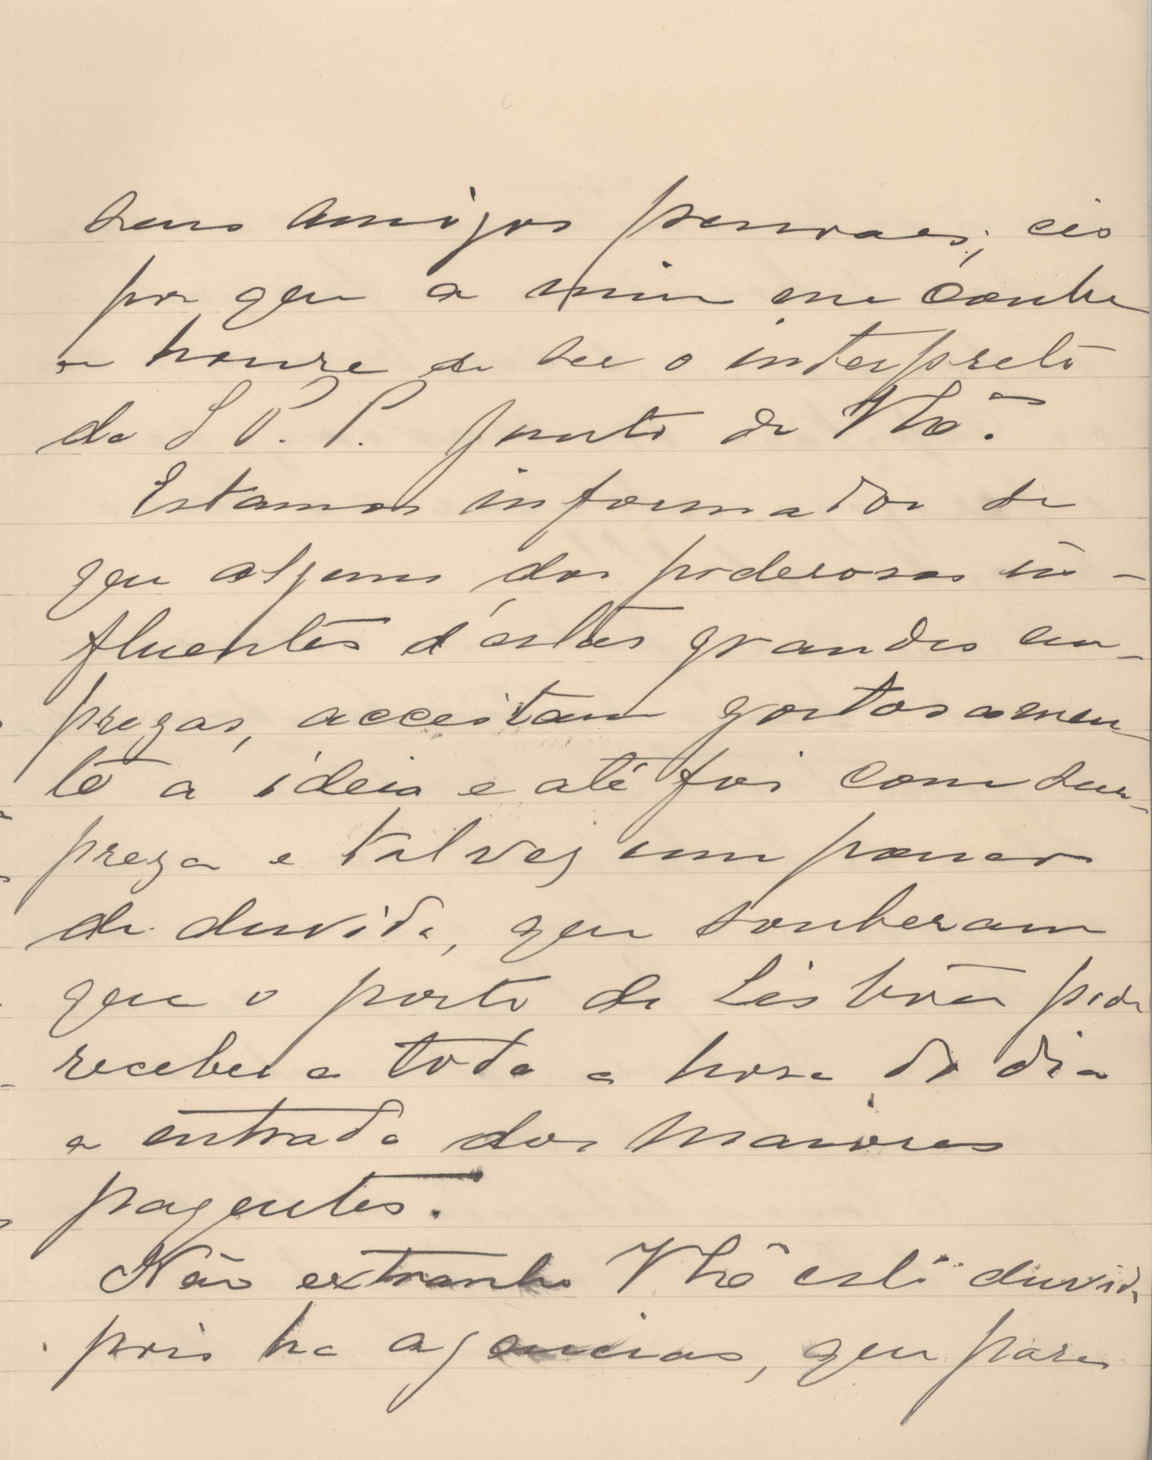 seus amigos pessoaes; eis
por que a mim me coube
a honra de ser o interprete
da S. P. P. junto de
Estamos informados de
que alguns dos poderosos in-
fluentes d'estas grandes em-
prezas, acceitam gostosamen-
te a ideia e até foi com sur-
preza e talvez um pouco
de duvida, que souberam
que o porto de Lisboa pode
receber a toda a hora do dia
a entrada dos maiores
paquetes.
Não extranho esta duvida
pois ha agencias, que para